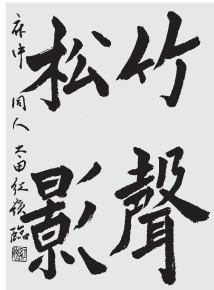 竹聲
松影
府中 同人 太田紅嶺臨